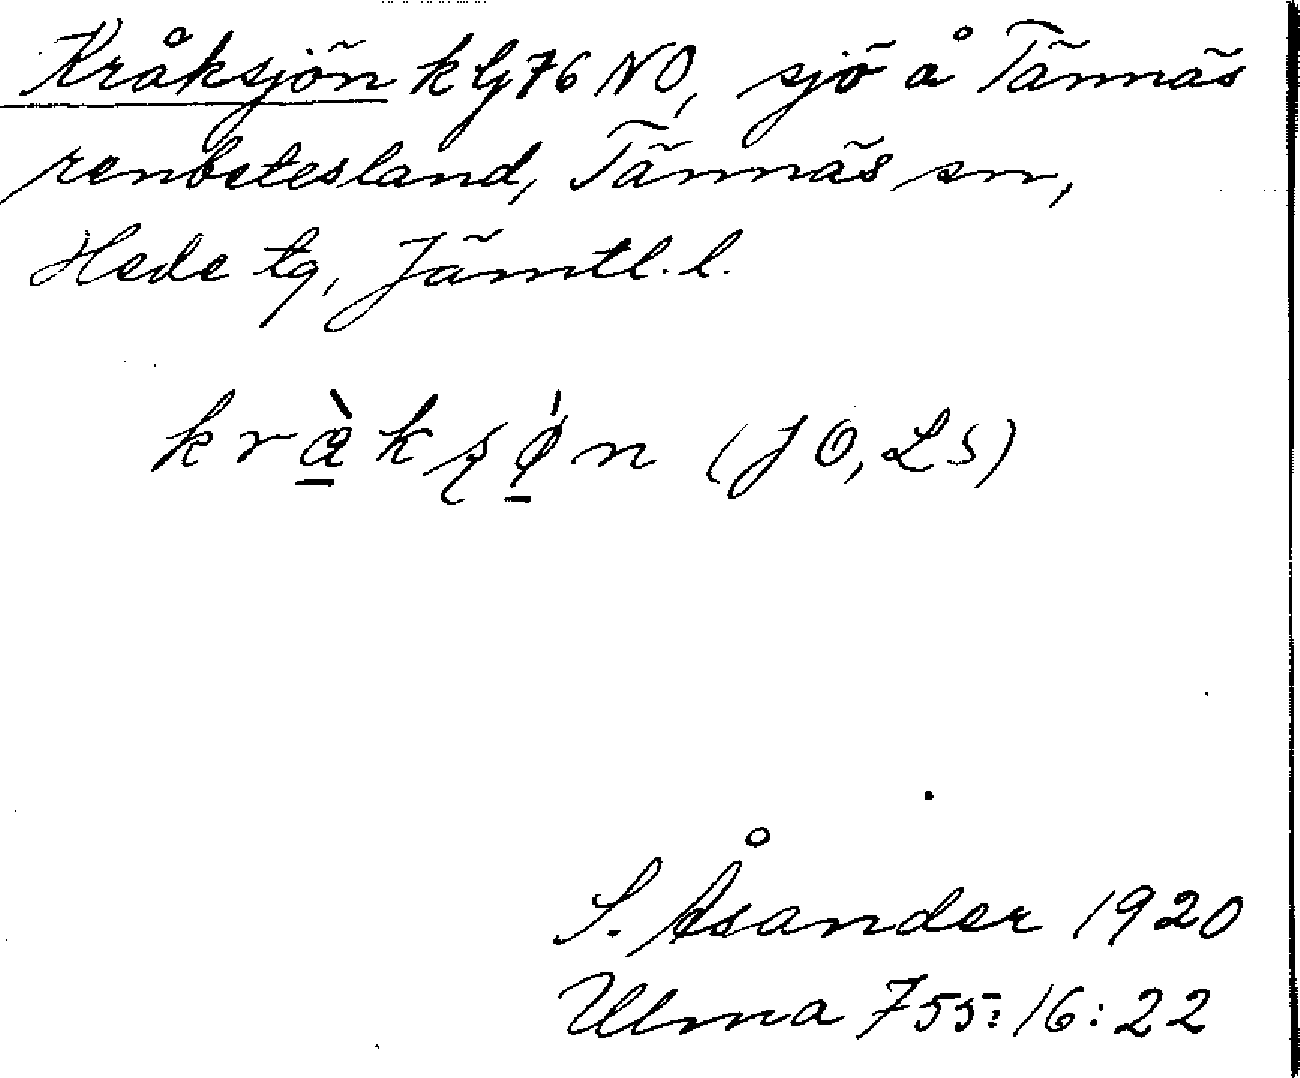 Kråksjön kG76NO, sjö å Tännäs
renbetesland, Tännäs sn,
Hede tg, Jämtl. l.
kràkʂø̀n (JO, LS)
S. Åsander 1920
Ulma 755:16:22